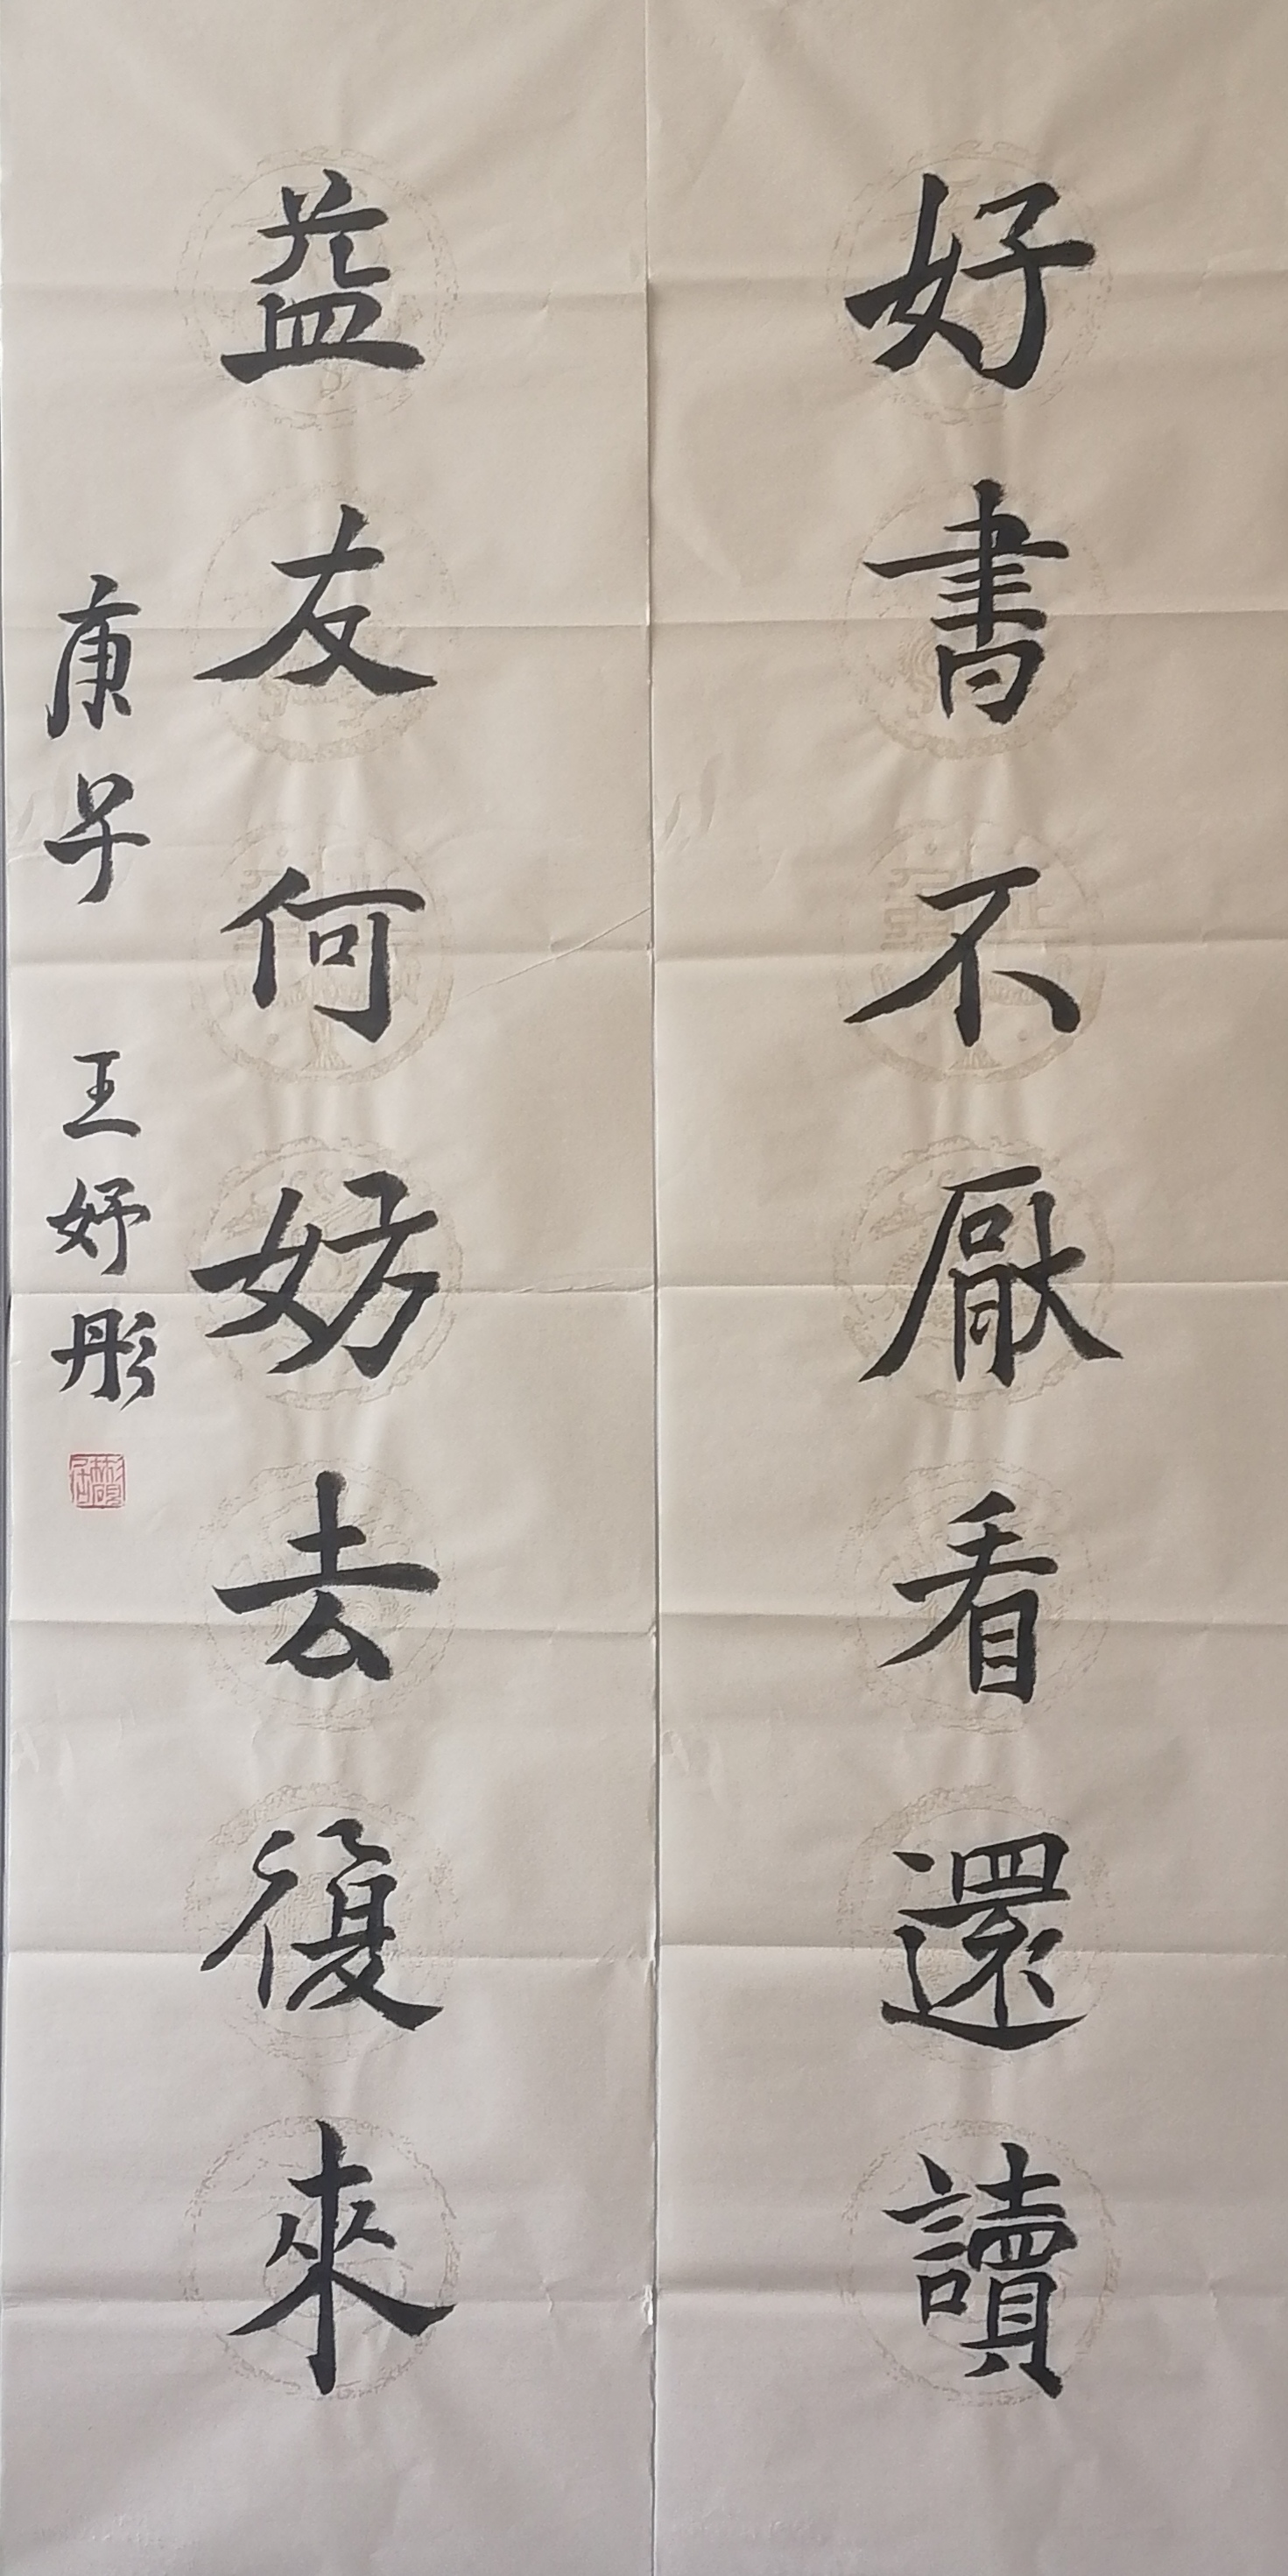 好書不厭看還讀
益友何妨去復來
庚子 王妤彤